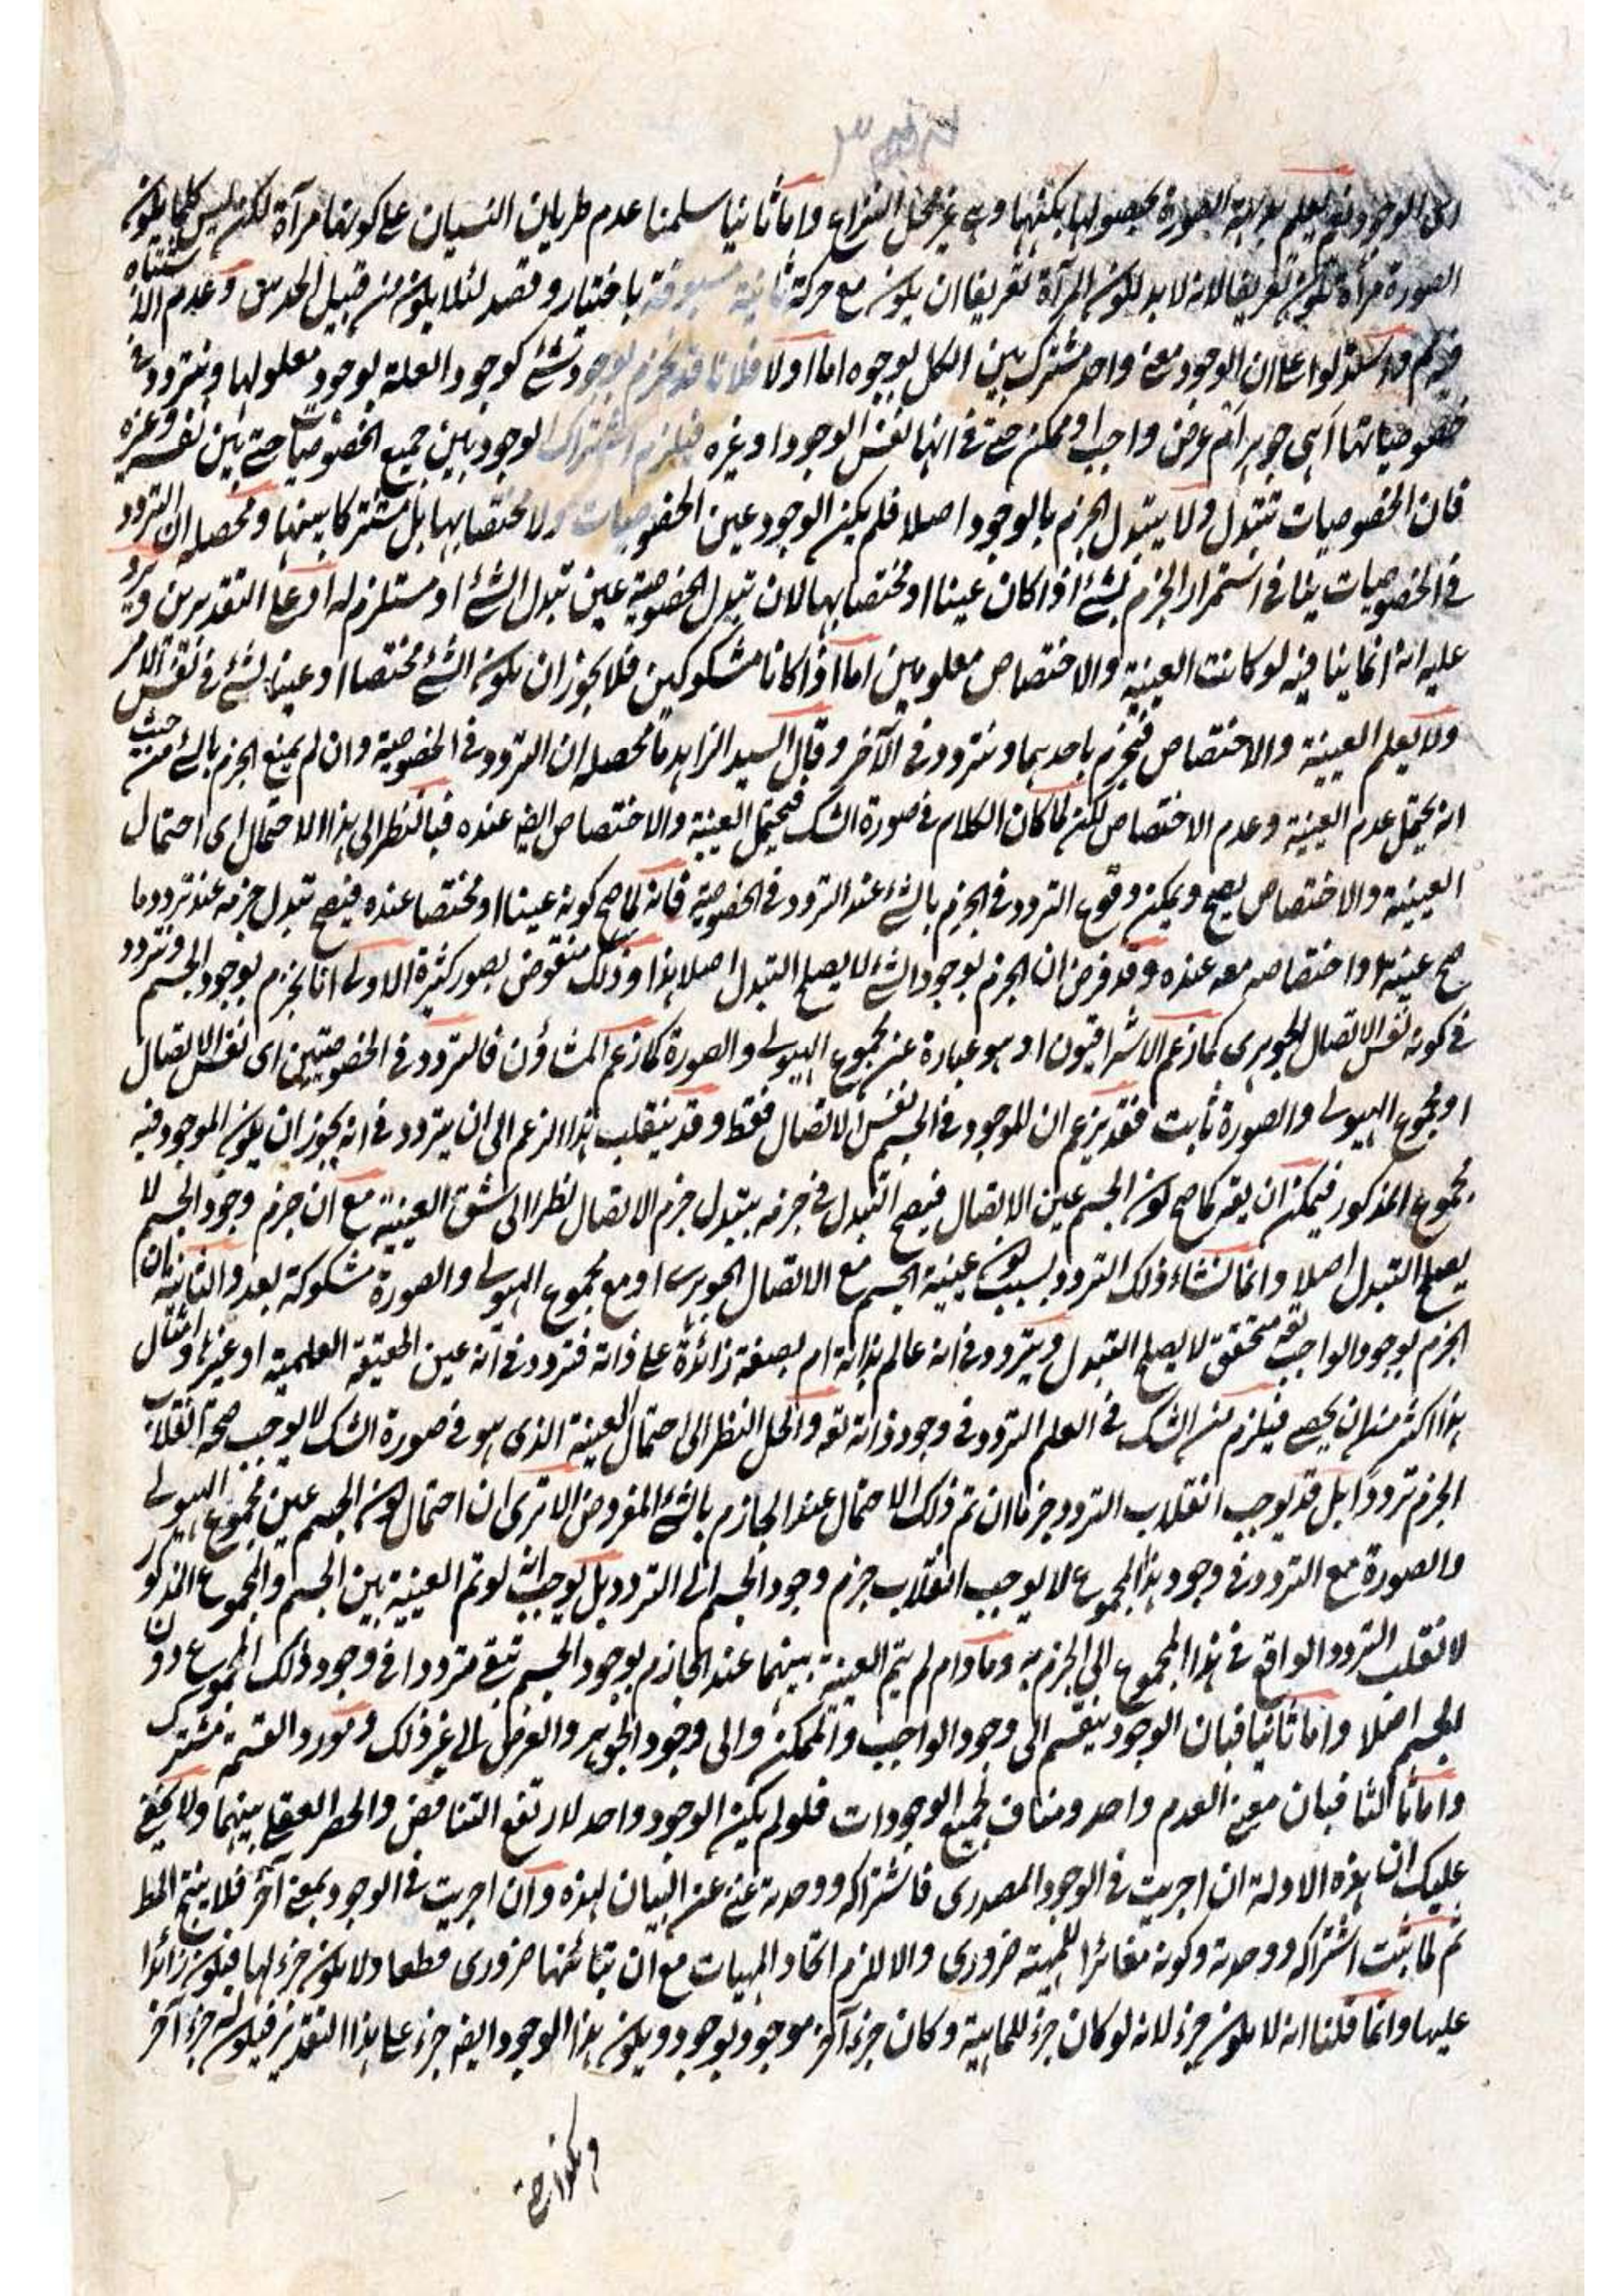 الوجود يعلم بداهة الصورة بحصولها بكنهها وهى غير محل النزاع واما ثانيا سلمنا عدم طريان النسيان على كونها مرآة لكن ليس كلما يكون
الصورة مرأة يكون تعريفا لانه لا بد لكون المرآة تعريفا ان يكون مع حركة ثانية مسبوقة باختيار وقصد لئلا يكون من قبيل الحدس وعدم الاشتباه
استدلوا على ان الوجود معنى واحد مشترك بين الكل بوجوه اما اولا فلانا قد نجزم بوجود شئ كوجود العلة بوجود معلولها ونتردد فى
خصوصياتها اهى جوهر ام عرض واجب او ممكن حتى فى انها نفس الوجود او غيره فيلزم اشتراك الوجود بين جميع الخصوصيات حتى بين نفسه وغيره
فان الخصوصيات تتبدل ولا يتبدل الجزم بالوجود اصلا فلم يكن الوجود عين الخصوصيات ولا مختصا بها بل مشتركا بينها ومحصله ان التردد
فى الخصوصيات ينافى استمرار الجزم بشئ اذا كان عينا او مختصا بها لان تبدل الخصوصية عين تبدل الشئ او مستلزم له او على التقديرين ويرد
عليه انه انما ينافيه لو كانت العينية والاختصاص معلومين اما اذا كانا مشكوكين فلا يجوز ان يكون الشئ مختصا او عينا لشئ فى نفس الامر
ولا يعلم العينية والاختصاص فنجزم باحدهما ونتردد فى الآخر وقال السيد الزاهد ما محصله ان التردد فى الخصوصية وان لم يمنع الجزم بالشئ من حيث
انه يحتمل عدم العينية وعدم الاختصاص لكن لما كان الكلام فى صورة الشك فيحتمل العينية والاختصاص ايضا عنده فبالنظر الى هذا الاحتمال اى احتمال
العينية والاختصاص يصح ويمكن وقوع التردد فى الجزم بالشئ عند التردد فى الخصوصية فانه لما صح كونه عينا او مختصا عنده فيصح تبدل جزمه عند تردد ما
صح عينيته او اختصاصه معه عنده وقد فرض ان الجزم بوجود الشئ لا يصلح التبدل اصلا هذا وذلك منقوض بصور كثيرة الاولى انا نجزم بوجود الجسم ونتردد
فى كونه نفس الاتصال الجوهرى كما زعم الاشراقيون او هو عبارة عن مجموع الهيولى والصورة كما زعم المشاؤن فالتردد فى الخصوصيتين اى نفس الاتصال
او مجموع الهيولى والصورة ثابت فقد يزعم ان للموجود فى الجسم نفس الاتصال فقط وقد ينقلب هذا الزعم الى ان يتردد فى انه يجوز ان يكون الموجود فيه
مجموع المذكور فيمكن ان يقه كما صح كون الجسم عين الاتصال فيصح التبدل فى جزمه بتبدل جزم الاتصال نظرا الى شق العينية مع ان جزم وجود الجسم لا
يصلح التبدل اصلا وانما نشاء ذلك التردد بسبب كون عينية الجسم مع الاتصال الجوهرى او مع مجموع الهيولى والصورة مشكوكة بعد والثانية ان
الجزم بوجود الواجب تعه متحقق لا يصلح التبدل ويتردد فى انه عالم بذاته ام بصفة زائدة على ذاته فتردد فى انه عين الحقيقة العلمية او غيرها وامثال
هذا اكثر من ان يحصى فيلزم من الشك فى العلم التردد فى وجود ذاته تعه والحل النظر الى احتمال العينية الذى هو فى صورة الشك لا يوجب صحة انقلاب
الجزم ترددا بل قد يوجب انقلاب التردد جزما ان تم ذلك الاحتمال عند الجازم بالشئ المفروض الا ترى ان احتمال كون الجسم عين مجموع الهيولى
والصورة مع التردد فى وجود هذا المجموع لا يوجب انقلاب جزم وجود الجسم الى التردد بل يوجب انه لو تم العينية بين الجسم والمجموع المذكور
لانقلب التردد الواقع فى هذا المجموع الى الجزم به وما دام لم يتم العينية بينهما عند الجازم بوجود الجسم تبقى مترددا فى وجود ذلك المجموع دون
الجسم اصلا واما ثانيا فبان الوجود ينقسم الى وجود الواجب والممكن والى وجود الجوهر والعرض الى غير ذلك ومورد القسمة مشترك
واما ثالثا فبان معنى العدم واحد ومناف لجميع الوجودات فلو لم يكن الوجود واحد لارتفع التناقض والحصر العقلى بينهما ولا يخفى
عليك ان هذه الادلة ان اجريت فى الوجود المصدرى فاشتراكه ووحدته غنى عن البيان لهذه وان اجريت فى الوجود بمعنى آخر فلا ينتج المط
ثم لما ثبت اشتراكه ووحدته وكونه مغائرا للمهية ضرورى والا للزم اتحاد المهيات مع ان تبائنها ضرورى قطعا ولا يكون جزء لها فيكون زائدا
عليها وانما قلنا انه لا يكون جزء لانه لو كان جزء للماهية وكان جزء آخر موجود بوجود ويكون هذا الوجود ايضا جزء على هذا التقدير فيكون له جزء آخر